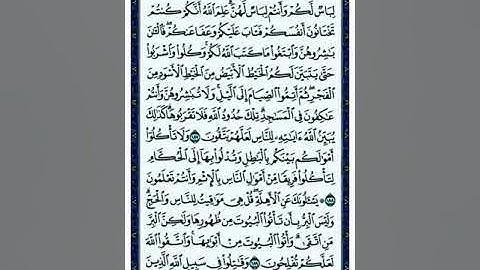 لِبَاسٌ لَّكُمْ وَأَنتُمْ لِبَاسٌ لَّهُنَّ ۗ عَلِمَ ٱللَّهُ أَنَّكُمْ كُنتُمْ
تَخْتَانُونَ أَنفُسَكُمْ فَتَابَ عَلَيْكُمْ وَعَفَا عَنكُمْ ۖ فَٱلْـَٰٔنَ
بَـٰشِرُوهُنَّ وَٱبْتَغُوا۟ مَا كَتَبَ ٱللَّهُ لَكُمْ ۚ وَكُلُوا۟ وَٱشْرَبُوا۟
حَتَّىٰ يَتَبَيَّنَ لَكُمُ ٱلْخَيْطُ ٱلْأَبْيَضُ مِنَ ٱلْخَيْطِ ٱلْأَسْوَدِ مِنَ
ٱلْفَجْرِ ۖ ثُمَّ أَتِمُّوا۟ ٱلصِّيَامَ إِلَى ٱلَّيْلِ ۚ وَلَا تُبَـٰشِرُوهُنَّ وَأَنتُمْ
عَـٰكِفُونَ فِى ٱلْمَسَـٰجِدِ ۗ تِلْكَ حُدُودُ ٱللَّهِ فَلَا تَقْرَبُوهَا ۗ كَذَٰلِكَ
يُبَيِّنُ ٱللَّهُ ءَايَـٰتِهِۦ لِلنَّاسِ لَعَلَّهُمْ يَتَّقُونَ ١٨٧ وَلَا تَأْكُلُوٓا۟
أَمْوَٰلَكُم بَيْنَكُم بِٱلْبَـٰطِلِ وَتُدْلُوا۟ بِهَآ إِلَى ٱلْحُكَّامِ
لِتَأْكُلُوا۟ فَرِيقًا مِّنْ أَمْوَٰلِ ٱلنَّاسِ بِٱلْإِثْمِ وَأَنتُمْ تَعْلَمُونَ
١٨٨ يَسْـَٔلُونَكَ عَنِ ٱلْأَهِلَّةِ ۖ قُلْ هِىَ مَوَٰقِيتُ لِلنَّاسِ وَٱلْحَجِّ ۗ
وَلَيْسَ ٱلْبِرُّ بِأَن تَأْتُوا۟ ٱلْبُيُوتَ مِن ظُهُورِهَا وَلَـٰكِنَّ ٱلْبِرَّ
مَنِ ٱتَّقَىٰ ۗ وَأْتُوا۟ ٱلْبُيُوتَ مِنْ أَبْوَٰبِهَا ۚ وَٱتَّقُوا۟ ٱللَّهَ
لَعَلَّكُمْ تُفْلِحُونَ ١٨٩ وَقَـٰتِلُوا۟ فِى سَبِيلِ ٱللَّهِ ٱلَّذِينَ